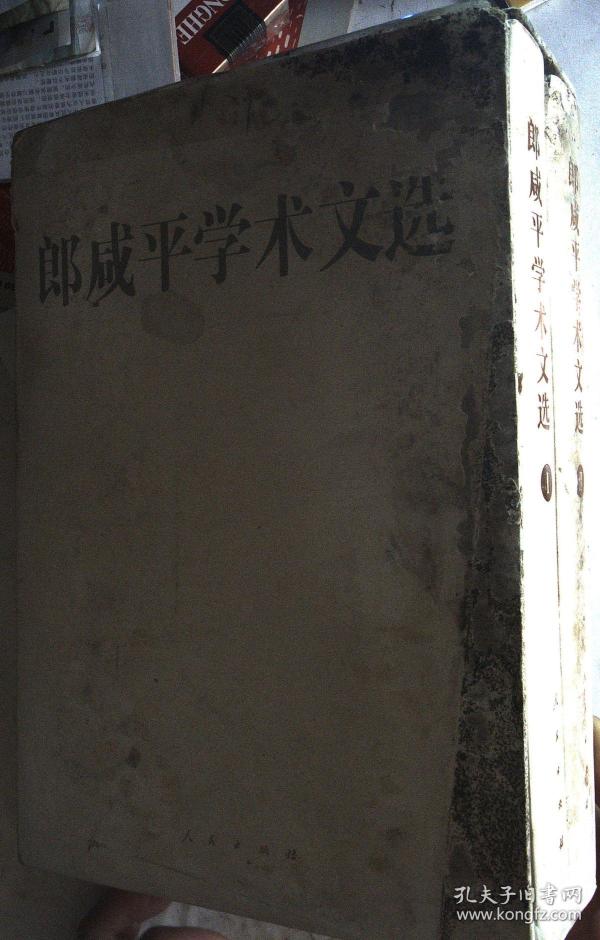 ONGHE
郎咸平学术文选
人民出版社
郎咸平学术文选
1
郎咸平学术文选
2
孔夫子旧书网
www.kongfz.com